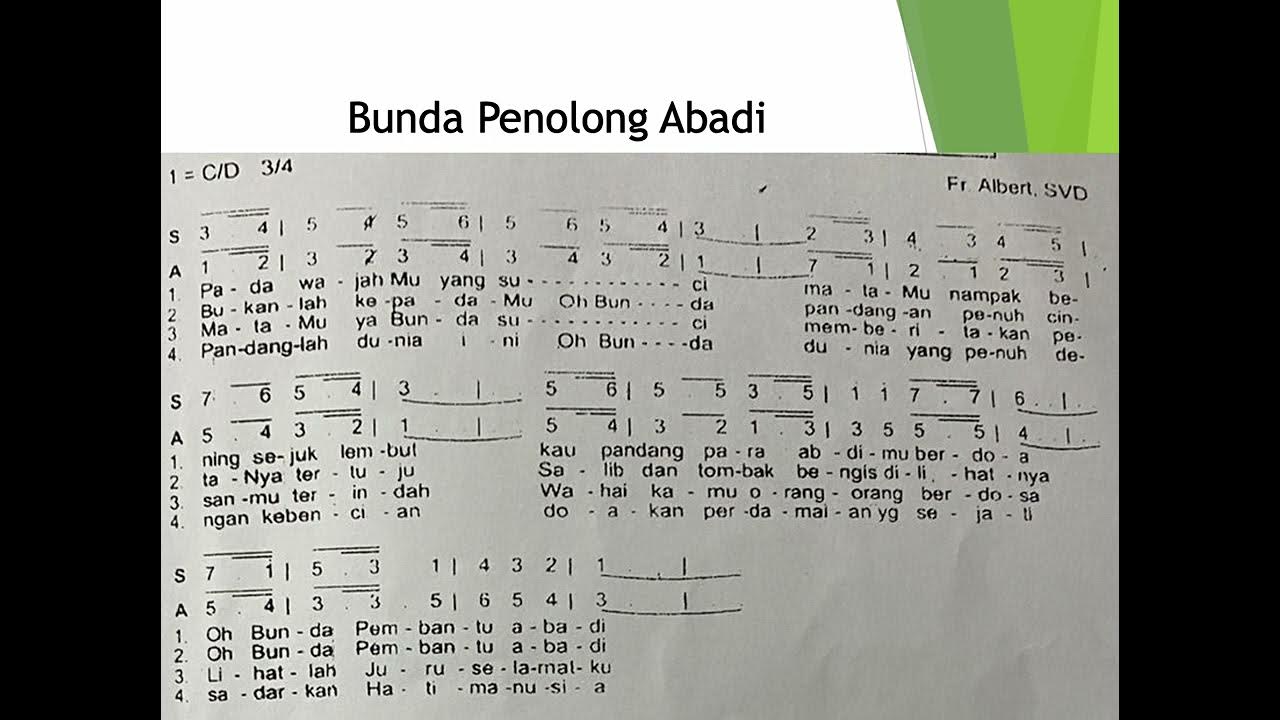 Bunda Penolong Abadi
1 = C/D 3/4
Fr. Albert, SVD
S 3 . 4 | 5 . 4 5 . 6 | 5 . 6 5 . 4 | 3 . | . 2 . 3 | 4 . 3 4 . 5 |
A 1 . 2 | 3 . 2 3 . 4 | 3 . 4 3 . 2 | 1 . | . 7 . 1 | 2 . 1 2 . 3 |
1. Pa - da wa - jah Mu yang su - - - - - - - - - - - - ci ma - ta - Mu nampak be-
2 Bu - kan - lah ke -pa - da - Mu Oh Bun - - - - da pan -dang -an pe-nuh cin-
3 Ma - ta - Mu ya Bun - da su - - - - - - - - - - - - ci mem- be - ri - ta - kan pe-
4. Pan-dang-lah du -nia i - ni Oh Bun - - - -da du - nia yang pe-nuh de-
S 7 . 6 5 . 4 | 3 . | . 5 6 | 5 . 5 3 . 5 | 1 1 7 . 7 | 6 . | .
A 5 . 4 3 . 2 | 1 . | . 5 4 | 3 . 2 1 . 3 | 3 5 5 . 5 | 4 . | .
1. ning se-juk lem -but kau pandang pa - ra ab - di - mu ber - do - a
2. ta - Nya ter - tu - ju Sa - lib dan tom-bak be - ngis di - li - hat - nya
3. san -mu ter - in - dah Wa - hai ka - mu o - rang - orang ber - do - sa
4. ngan keben - ci - an do - a - kan per -da - mai - an yg se - ja - ti
S 7 . 1 | 5 . 3 1 | 4 3 2 | 1 . . |
A 5 . 4 | 3 . 3 . 5 | 6 5 4 | 3 . . |
1. Oh Bun - da Pem - ban - tu a - ba - di
2. Oh Bun - da Pem - ban - tu a - ba - di
3. Li - hat - lah Ju - ru - se - la-mat- ku
4. sa - dar - kan Ha - ti - ma -nu -si - a